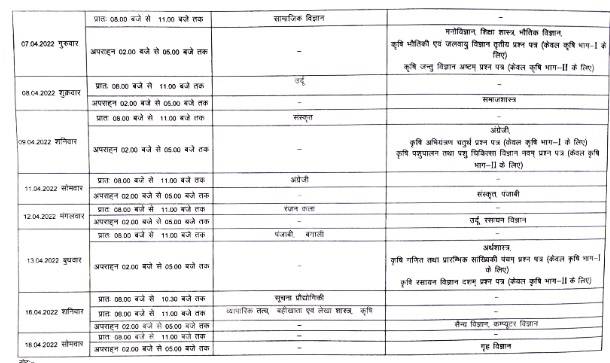 07.04.2022 गुरुवार
प्रातः 08.00 बजे से 11.00 बजे तक
सामाजिक विज्ञान
–
अपराहन 02.00 बजे से 05.00 बजे तक
–
मनोविज्ञान, शिक्षा शास्त्र, भौतिक विज्ञान,
कृषि भौतिकी एवं जलवायु विज्ञान तृतीय प्रश्न पत्र (केवल कृषि भाग–I के
लिए)
कृषि जन्तु विज्ञान अष्टम् प्रश्न पत्र (केवल कृषि भाग–II के लिए)
08.04.2022 शुक्रवार
प्रातः 08.00 बजे से 11.00 बजे तक
उर्दू
–
अपराहन 02.00 बजे से 05.00 बजे तक
–
समाजशास्त्र
09.04.2022 शनिवार
प्रातः 08.00 बजे से 11.00 बजे तक
संस्कृत
–
अपराहन 02.00 बजे से 05.00 बजे तक
–
अंग्रेजी,
कृषि अभियंत्रण चतुर्थ प्रश्न पत्र (केवल कृषि भाग–I के लिए)
कृषि पशुपालन तथा पशु चिकित्सा विज्ञान नवम् प्रश्न पत्र (केवल कृषि
भाग–II के लिए)
11.04.2022 सोमवार
प्रातः 08.00 बजे से 11.00 बजे तक
अंग्रेजी
–
अपराहन 02.00 बजे से 05.00 बजे तक
–
संस्कृत, पंजाबी
12.04.2022 मंगलवार
प्रातः 08.00 बजे से 11.00 बजे तक
रंजन कला
–
अपराहन 02.00 बजे से 05.00 बजे तक
–
उर्दू, रसायन विज्ञान
13.04.2022 बुधवार
प्रातः 08.00 बजे से 11.00 बजे तक
पंजाबी, बंगाली
–
अपराहन 02.00 बजे से 05.00 बजे तक
–
अर्थशास्त्र,
कृषि गणित तथा प्रारम्भिक सांख्यिकी पंचम् प्रश्न पत्र (केवल कृषि भाग–I
के लिए)
कृषि रसायन विज्ञान दशम् प्रश्न पत्र (केवल कृषि भाग–II के लिए)
16.04.2022 शनिवार
प्रातः 08.00 बजे से 10.30 बजे तक
सूचना प्रौद्योगिकी
–
प्रातः 08.00 बजे से 11.00 बजे तक
व्यापारिक तत्व, बहीखाता एवं लेखा शास्त्र, कृषि
–
अपराहन 02.00 बजे से 05.00 बजे तक
–
सैन्य विज्ञान, कम्प्यूटर विज्ञान
18.04.2022 सोमवार
प्रातः 08.00 बजे से 11.00 बजे तक
–
–
अपराहन 02.00 बजे से 05.00 बजे तक
–
गृह विज्ञान